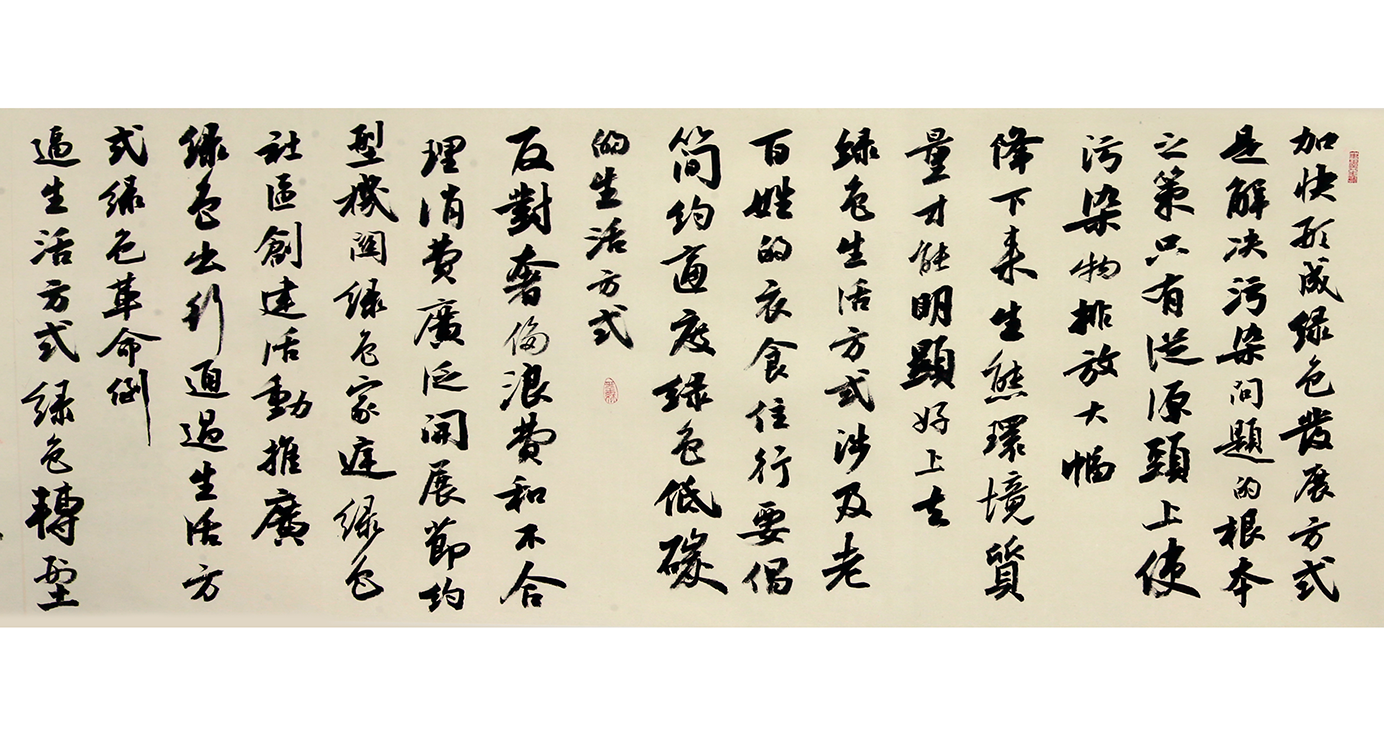 加快形成绿色發展方式
是解决污染问題的根本
之策只有從源頭上使
污染物排放大幅
降下来生態環境質
量才能明顯好上去
绿色生活方式涉及老
百姓的衣食住行要倡
简约适度绿色低碳
的生活方式
反對奢侈浪費和不合
理消費廣泛開展節约
型機関绿色家庭绿色
社區創建活動推廣
绿色出行通過生活方
式绿色革命倒
逼生活方式绿色轉型